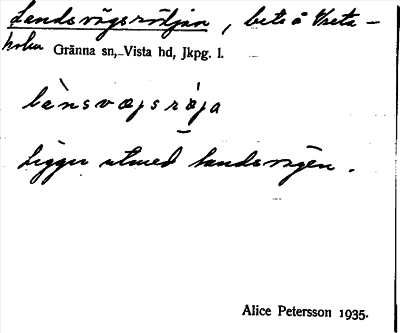 Landsvägsröjan, bete å Vreta-
holm Gränna sn, Vista hd, Jkpg. l.
lànsvægsrøja
Ligger utmed landsvägen.
Alice Petersson 1935.